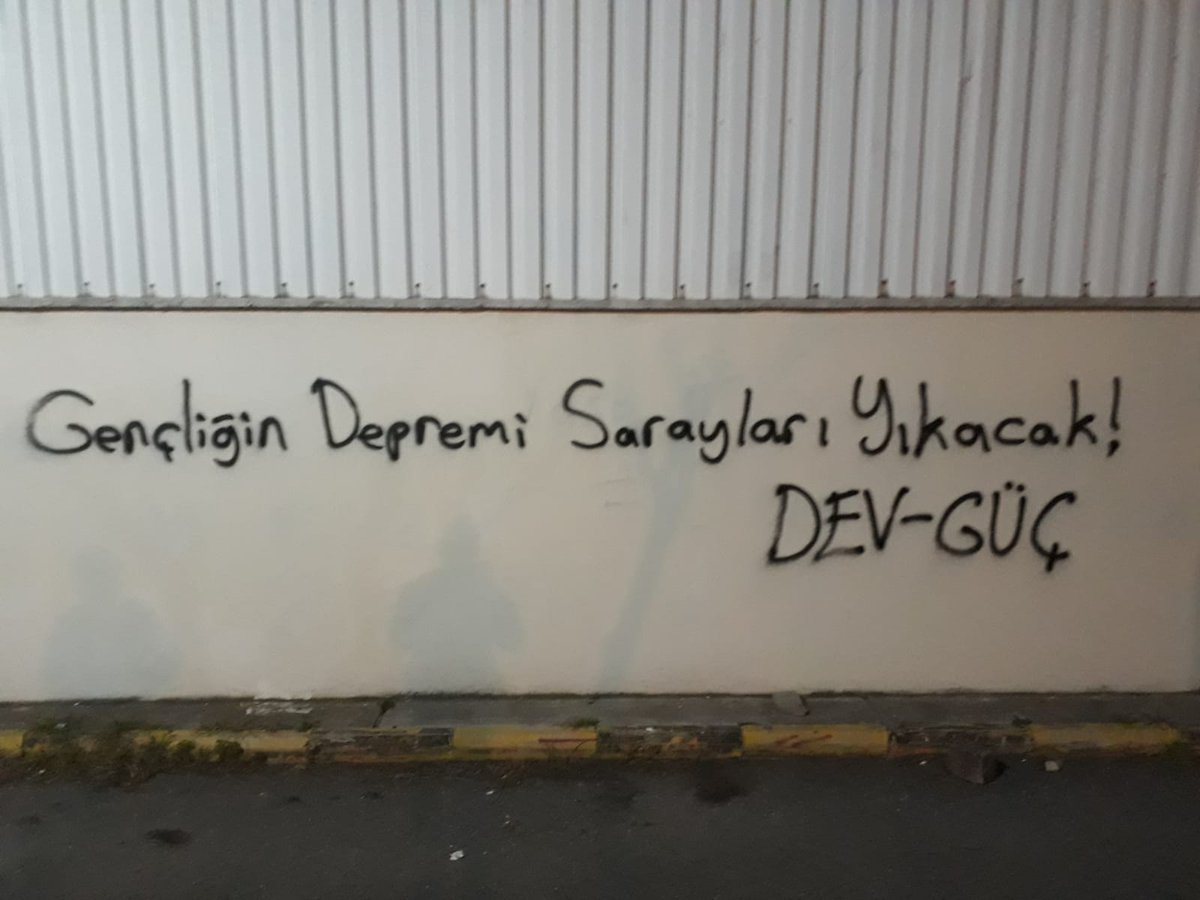 Gençliğin Depremi Sarayları Yıkacak!
DEV-GÜÇ